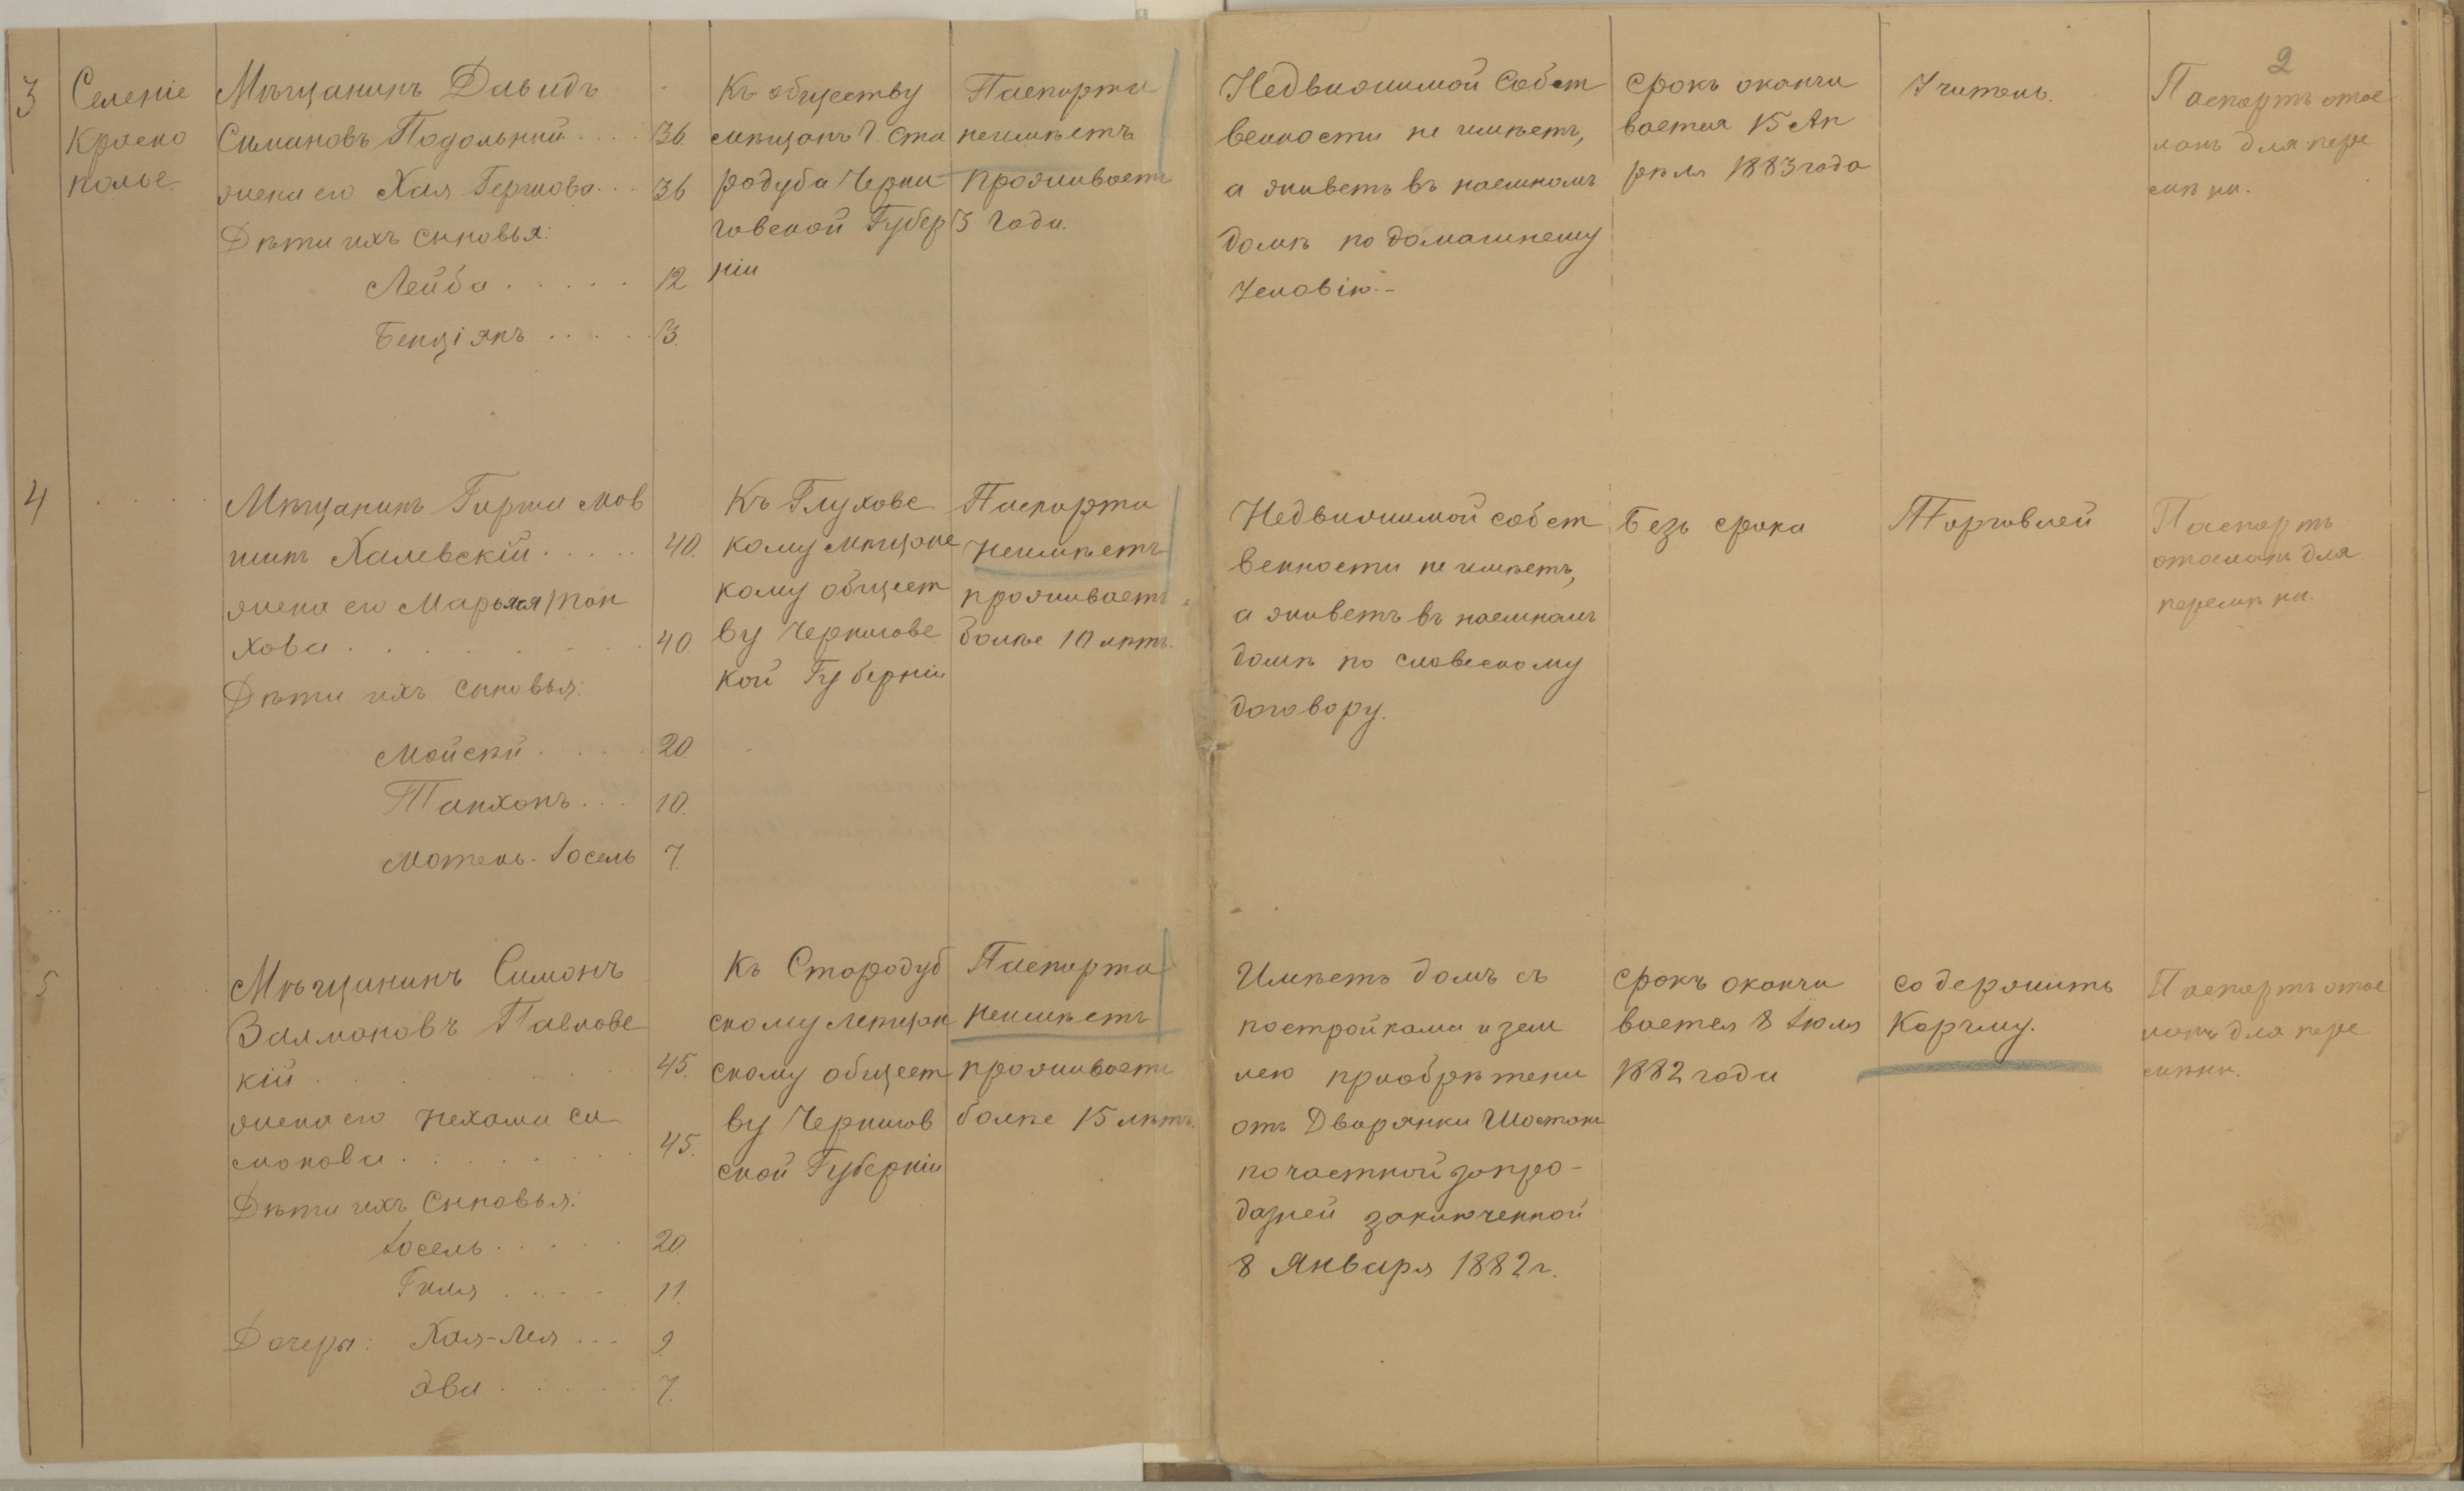 2
3
Селеніе
Красно
полье.
Мѣщанинъ Давидъ
Симановъ Подольный . . . . 36
жена его Хая Гершова . . . 36
Дѣти ихъ сыновья:
Лейба . . . . . 12
Бенціянъ . . . . . 3.
Къ обществу
мѣщанъ Г. Ста
родуба Черни
говской Губер
ніи
Паспорта
неимѣетъ
проживаетъ
3 года.
Недвижимой Собст
венности не имѣетъ,
а живетъ въ наемномъ
домѣ по домашнему
условію.-
Срокъ оканчи
вается 15 Ап
рѣля 1883 года
Учитель.
Паспортъ отос
ланъ для пере
мѣны.
4
Мѣщанинъ Гирша Мов
шинъ Халевскій . . . . . 40.
жена его Марьяся Тан
хова . . . . . . . 40.
Дѣти ихъ сыновья:
Мойсей . . . . 20.
Танхонъ . . . 10.
Мотель-Іосель 7.
Къ Глуховс
кому мѣщанс
кому общест
ву Черниговс
кой Губерніи
Паспорта
неимѣетъ
проживаетъ
болѣе 10 лѣтъ.
Недвижимой собст
венности не имѣетъ,
а живетъ въ наемномъ
домѣ по словесному
договору.
Безъ срока
Торговлей
Паспортъ
отосланъ для
перемѣны.
5
Мѣщанинъ Симонъ
Залмановъ Павловс
кій . . . . . . . 45.
жена его Нехама Си
монова . . . . . . . 45.
Дѣти ихъ Сыновья:
Іосель . . . . . 20.
Гиля . . . . 11.
Дочери: Хая-Лея . . . 9.
Эва . . . . . 7.
Къ Стародуб
скому мѣщан
скому общест
ву Чернигов
ской Губерніи
Паспорта
неимѣетъ
проживаетъ
болѣе 15 лѣтъ.
Имѣетъ домъ съ
постройками и зем
лею приобрѣтены
отъ Дворянки Шостакъ
по частной запро-
дажей заключенной
8 Января 1882 г.
Срокъ оканчи
вается 8 Іюля
1882 года
содержитъ
Корчму.
Паспортъ отос
ланъ для пере
мѣны.